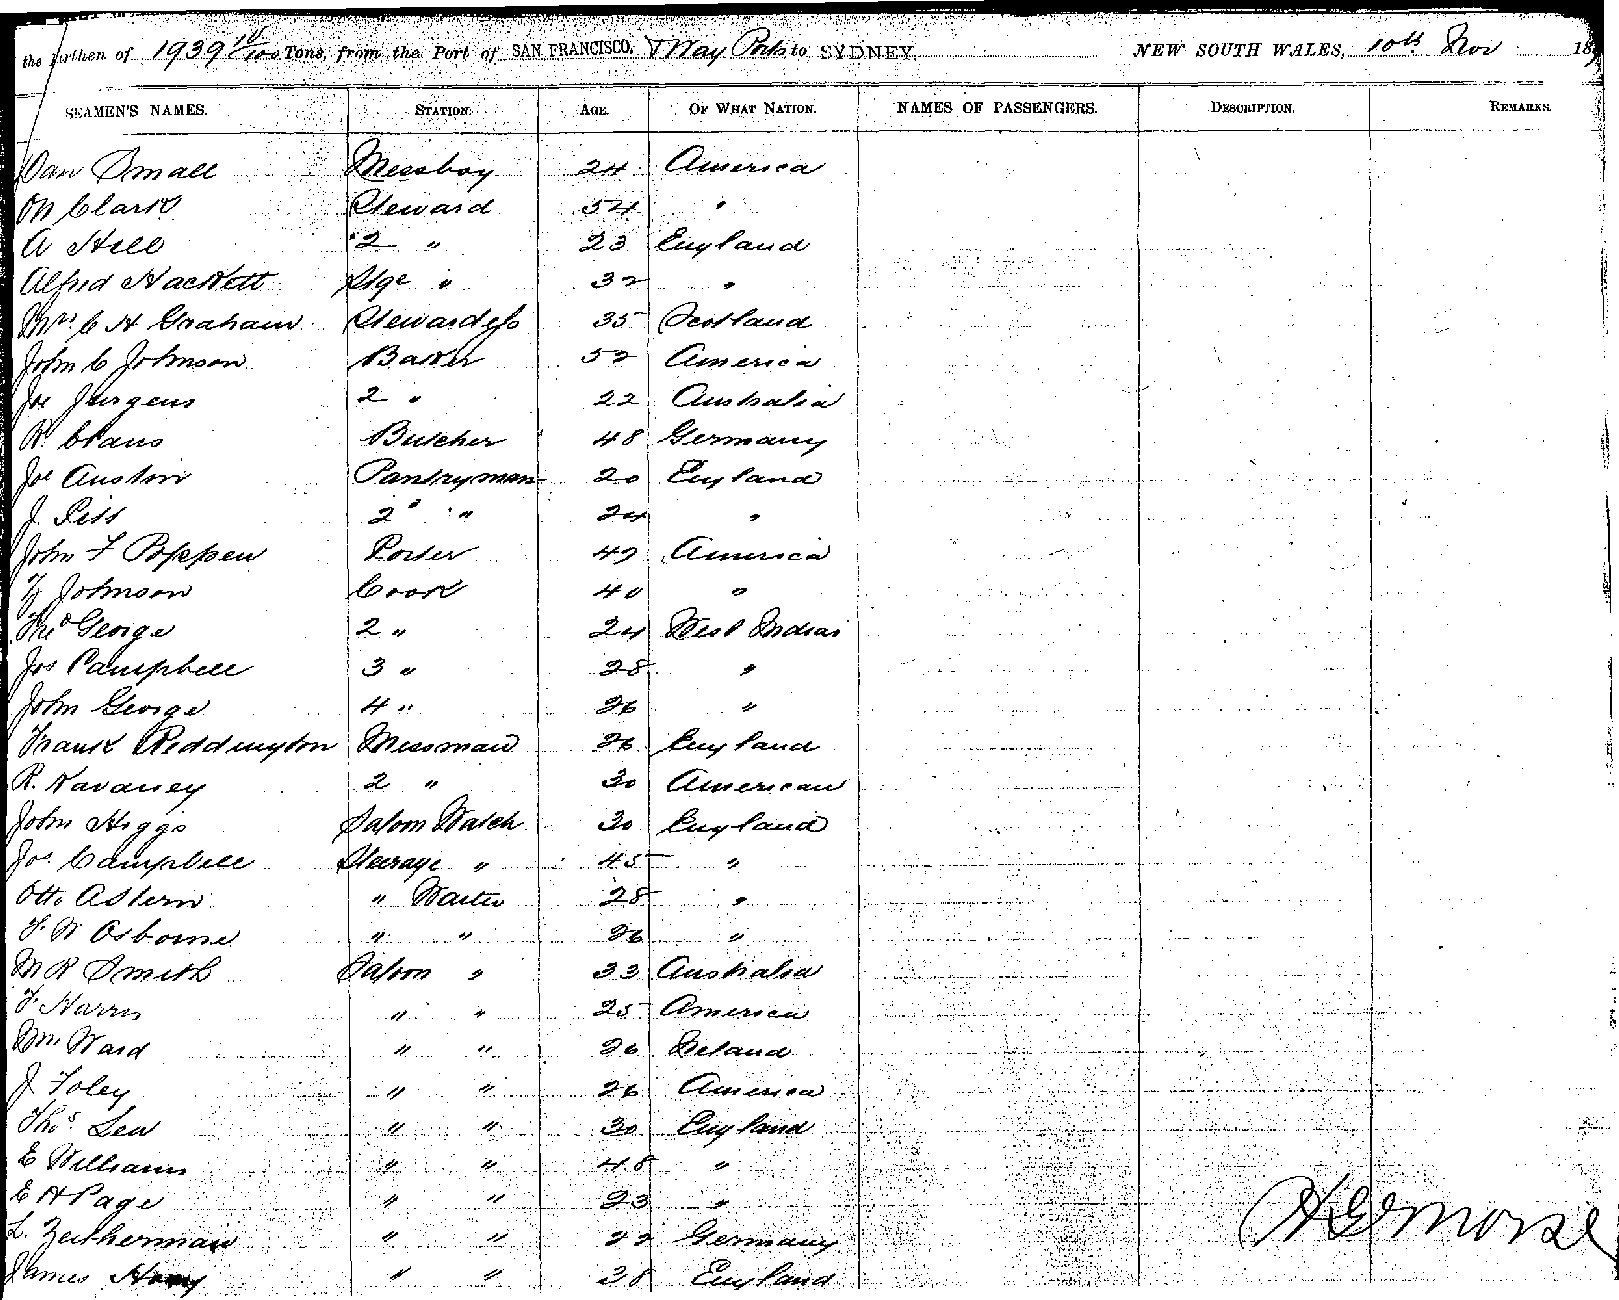 the Burthen of 1939 10/100 Tons, from the Port of SAN FRANCISCO. & Way Ports to SYDNEY, NEW SOUTH WALES, 10th Nov 18
SEAMEN'S NAMES. STATION. AGE. OF WHAT NATION. NAMES OF PASSENGERS. DESCRIPTION. REMARKS.
Dan Small Messboy 24 America
Clark Steward 54 "
A Hill 2 " 23 England
Alfred Hackett Stge " 32 "
Mrs C H Graham Stewardess 35 Scotland
John C Johnson Baker 52 America
Joe Jurgens 2 " 22 Australia
R. Claus Butcher 48 Germany
Joe Austin Pantryman 20 England
J. 2d " 24 "
John F Poppen Porter 49 America
Johnson Cook 40 "
Tho George 2 " 24 West Indias
Jos Campbell 3 " 28 "
John George 4 " 26 "
Frank Reddington Messman 26 England
R. Kavaney 2 " 30 American
John Higgs Saloon Watch 30 England
Jos. Campbell Steerage " 45 "
Otto Astern " Waiter 28 "
F. W Osborne " " 26 "
M R Smith Saloon " 33 Australia
F Harris " " 25 America
Wm Ward " " 26 Ireland
J Foley " " 26 America
Thos Lea " " 30 England
E Williams " " 48 "
E H Page " " 23 "
L. Zeitherman " " 22 Germany
James " " 38 England
H G Morse